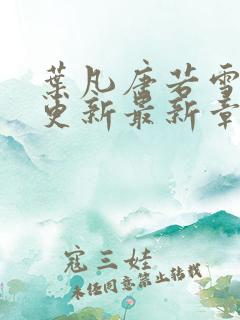 葉凡唐若雪
更新最新章
寇三娃
未经同意禁止转载